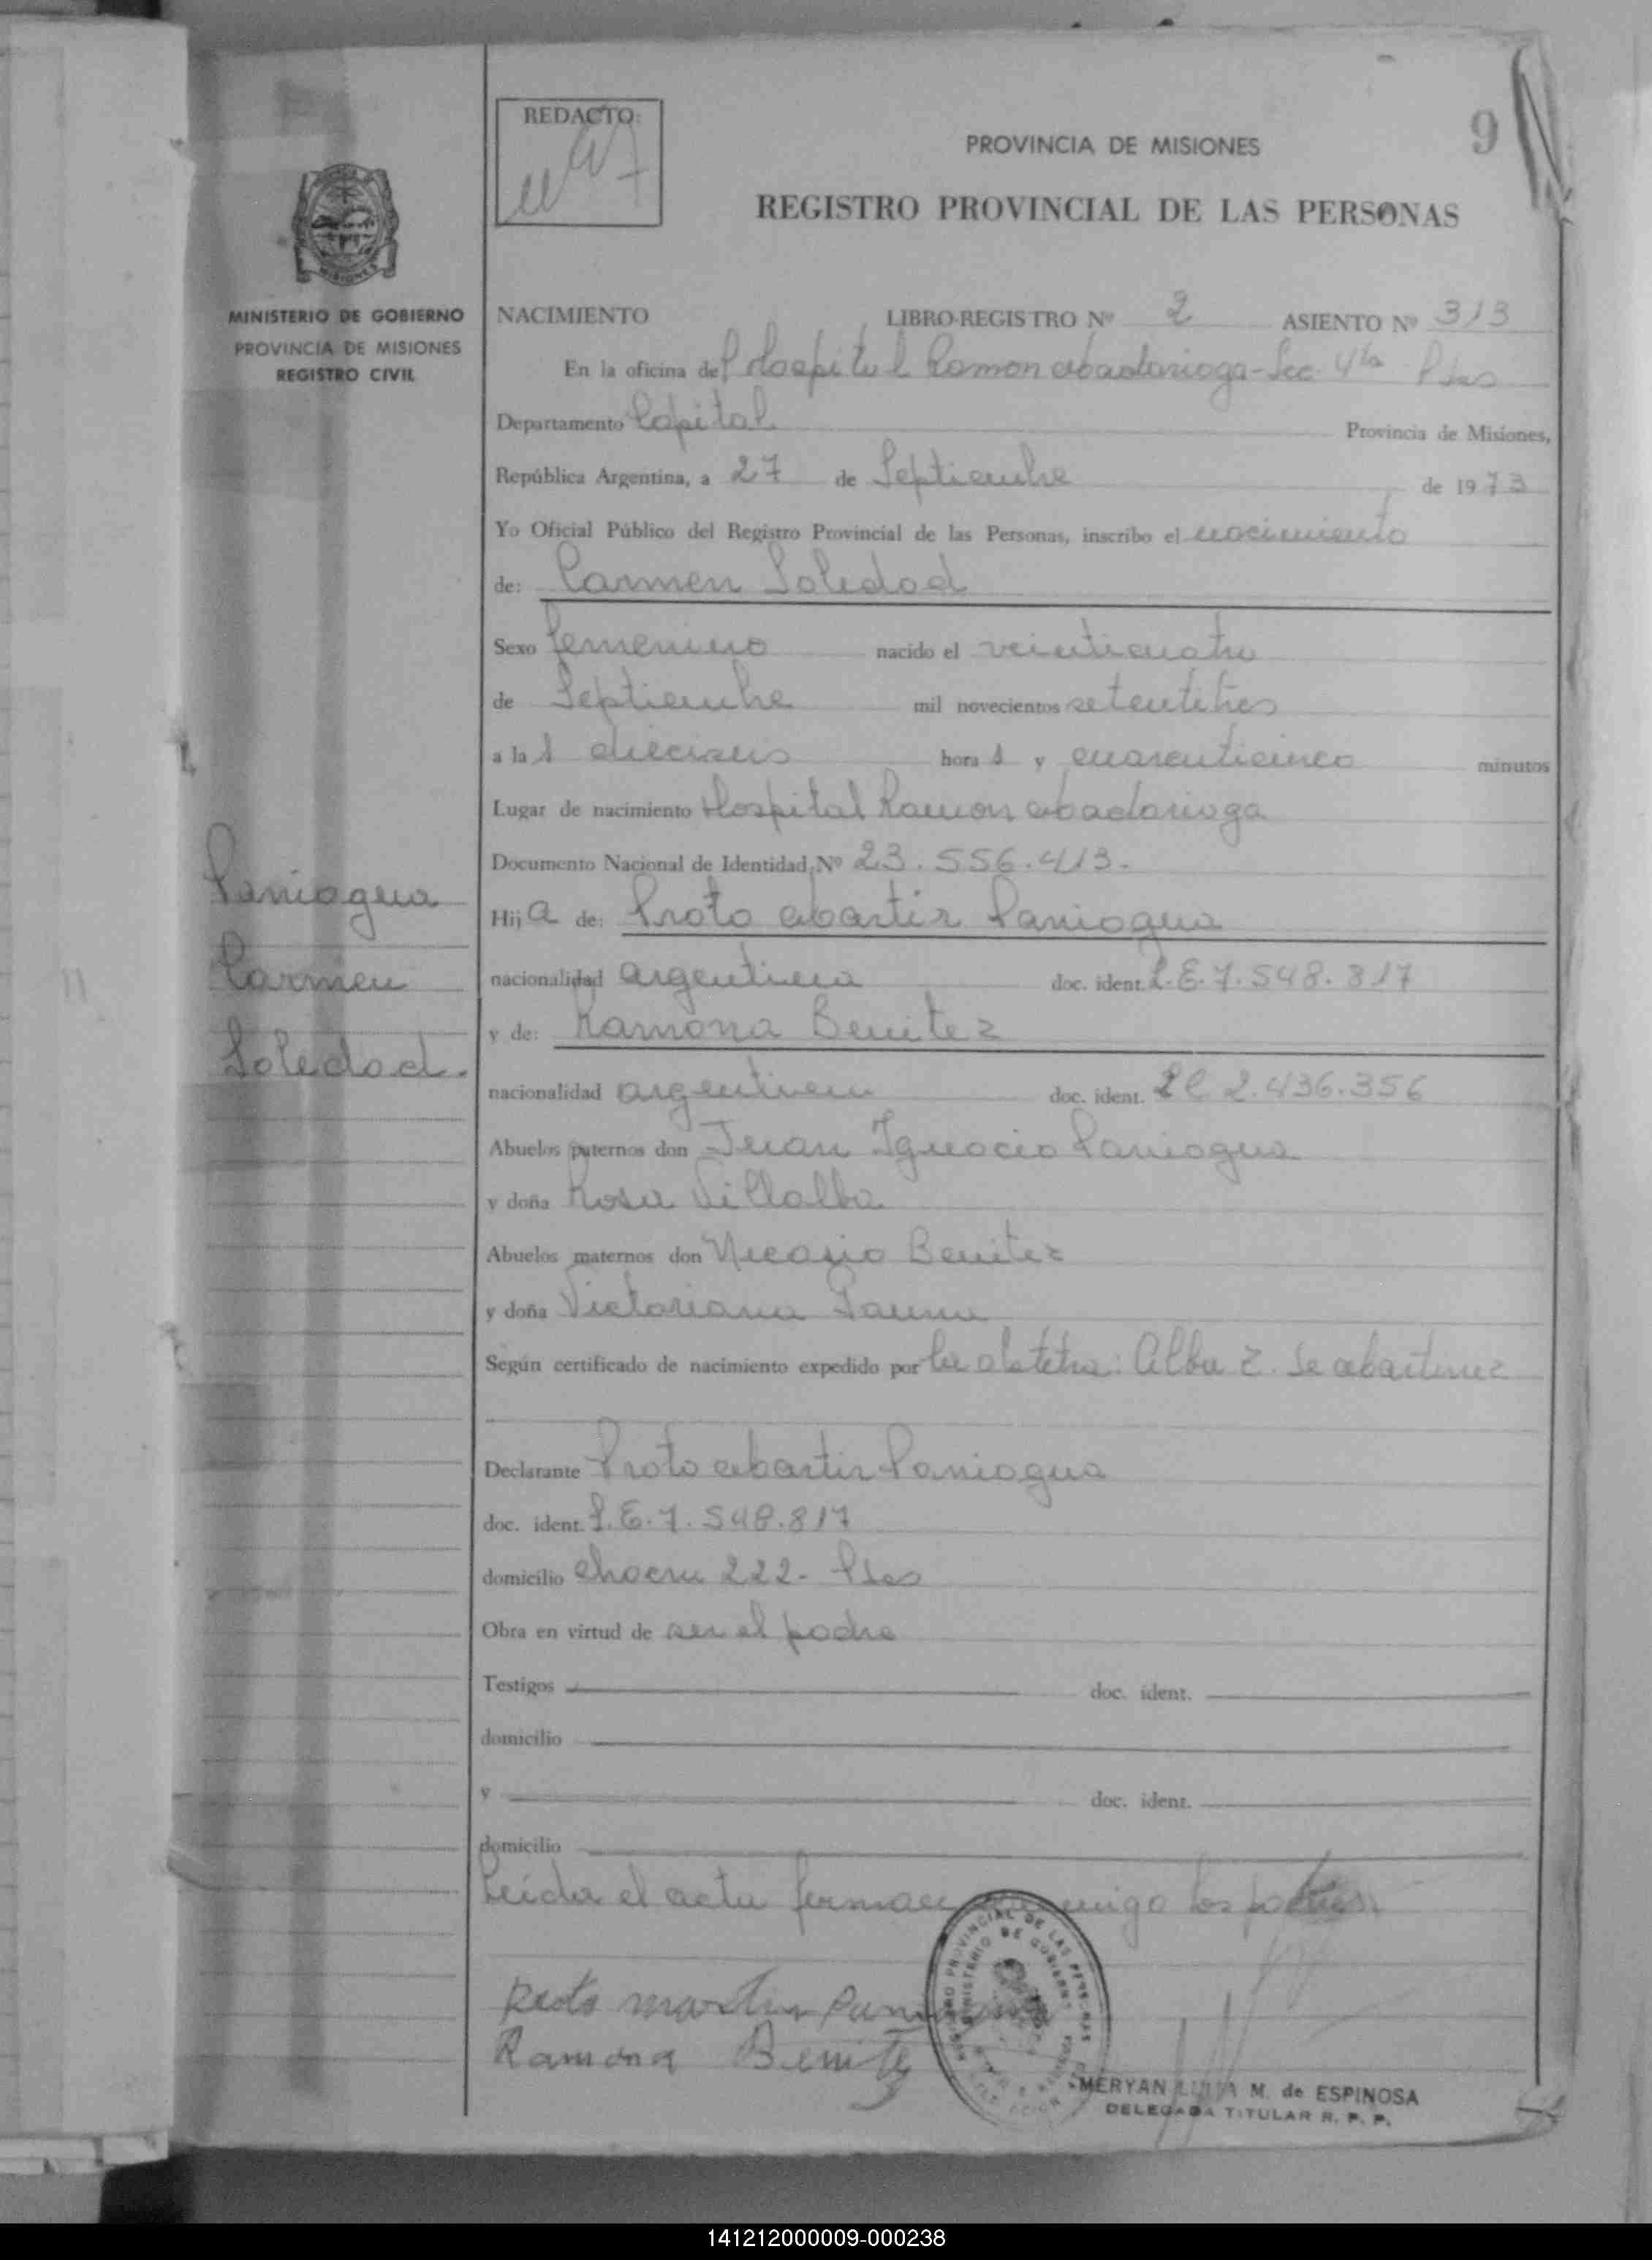 REDACTO:
9
PROVINCIA DE MISIONES
REGISTRO PROVINCIAL DE LAS PERSONAS
MINISTERIO DE GOBIERNO
PROVINCIA DE MISIONES
REGISTRO CIVIL
NACIMIENTO LIBRO-REGISTRO Nº 2 ASIENTO Nº 313
En la oficina del Hospital Ramon Madariaga-Sec. 4ta Pdas
Departamento Capital Provincia de Misiones,
República Argentina, a 27 de Septiembre de 1973
Yo Oficial Público del Registro Provincial de las Personas, inscribo el nacimiento
de: Carmen Soledad
Sexo femenino nacido el veinticuatro
de Septiembre mil novecientos setentitres
a las dieciseis horas y cuarenticinco minutos
Lugar de nacimiento Hospital Ramon Madariaga
Documento Nacional de Identidad, Nº 23.556.413.
Paniagua
Carmen
Soledad.
Hija de: Proto Martir Paniagua
nacionalidad argentina doc. ident. L.E. 7.548.817
y de: Ramona Benitez
nacionalidad argentina doc. ident. LC 2.436.356
Abuelos paternos don Juan Ignacio Paniagua
y doña Rosa Villalba
Abuelos maternos don Nicasio Benitez
y doña Victoriana
Según certificado de nacimiento expedido por la obstetra: Alba Z. de Martinez
Declarante Proto Martir Paniagua
doc. ident. L.E. 7.548.817
domicilio 222- Pdas
Obra en virtud de ser el padre
Testigos doc. ident.
domicilio
y doc. ident.
domicilio
Leida el acta firman conmigo los padres
Proto Martir Paniagua
Ramona Benitez
REGISTRO PROVINCIAL DE LAS PERSONAS
MINISTERIO DE GOBIERNO
MERYAN M. de ESPINOSA
DELEGADA TITULAR R. P. P.
141212000009-000238